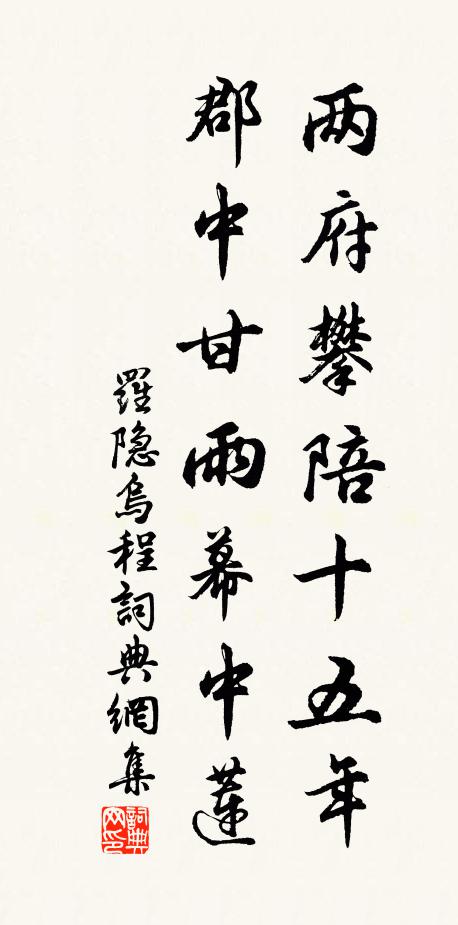 两府攀陪十五年
郡中甘雨幕中蓮
羅隐烏程詞典網集
詞典网印